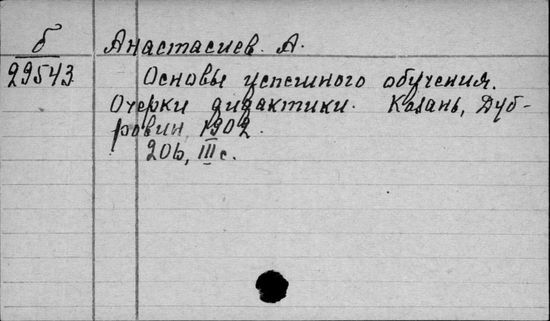 б
29543
Анастасиев. А.
Основы успешного обучения.
Очерки дидактики. Казань, Дуб-
ровин, 1902.
206, III с.